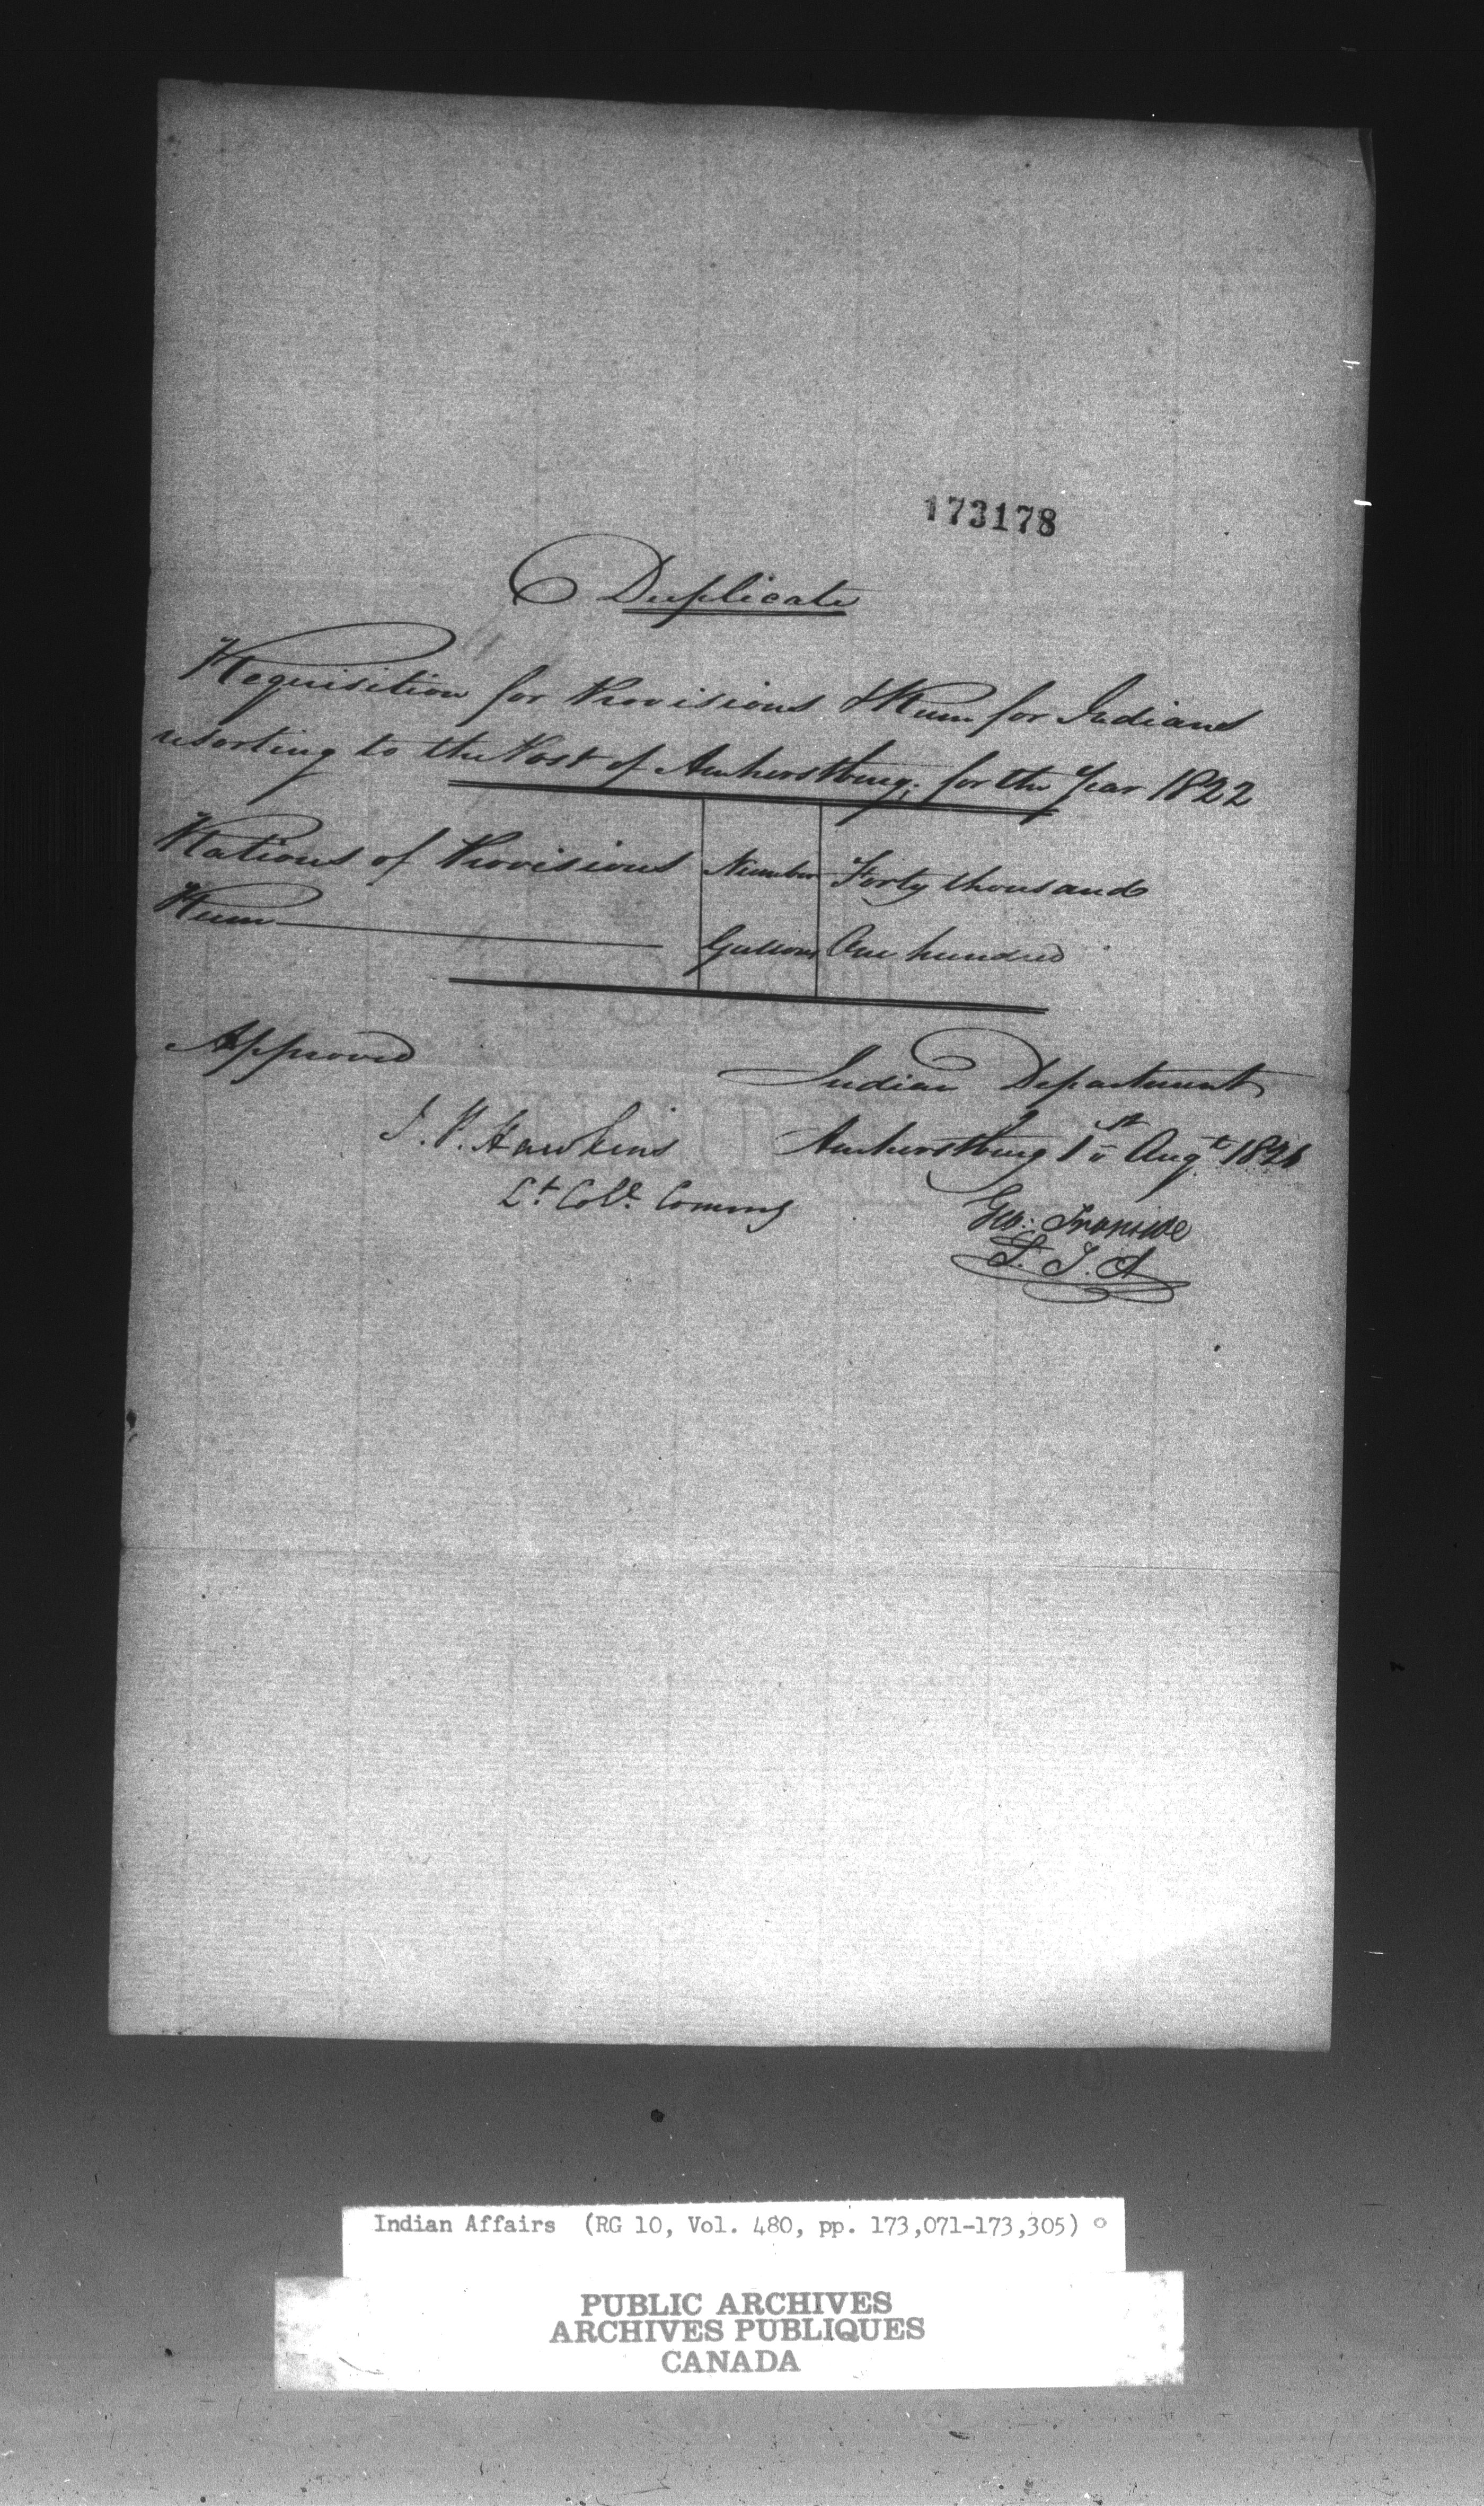 173178
Duplicate
Requisition for Provisions & Rum for Indians
resorting to the Post of Amherstburg; for the Year 1822
Rations of Provisions Number Forty thousand
Rum Gallons One hundred
Approved
Indian Department
J. P. Hawkins Amherstburg 1st Augt 1821
Lt Col. Commg
Geo: Ironside
S. I. A
Indian Affairs (RG 10, Vol. 480, pp. 173,071-173,305)
PUBLIC ARCHIVES
ARCHIVES PUBLIQUES
CANADA